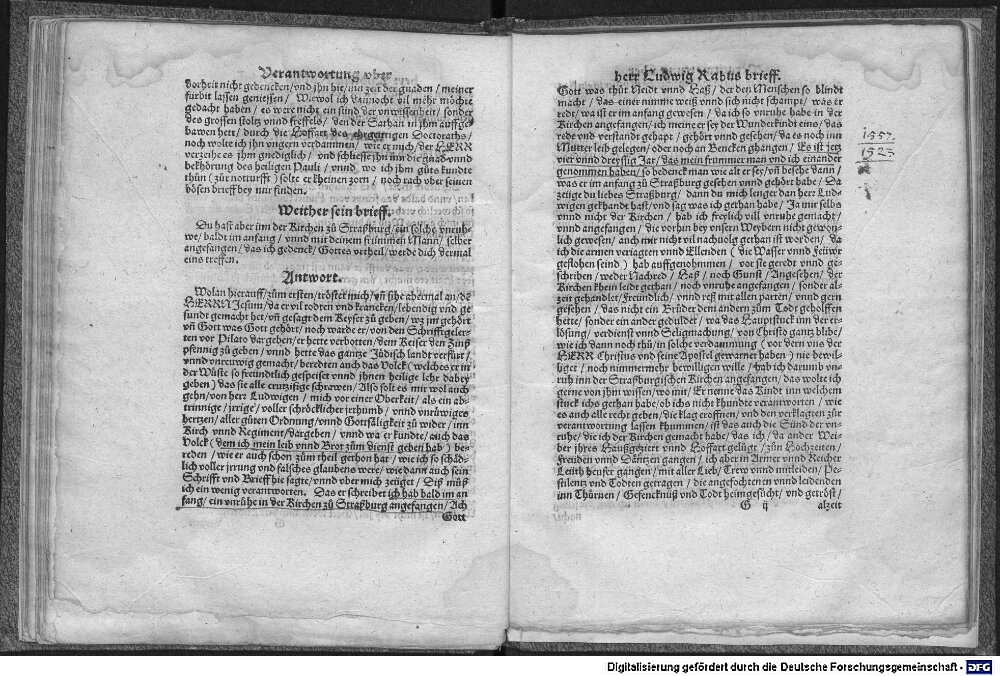 Verantwortung vber
vorheit nicht gedencken/vnd jhn hie/inn zeit der gnaden/meiner
fürbit lassen geniessen/ Wiewol ich dannocht vil mehr möchte
gedacht haben/ es were nicht ein sünd der vnwissenheit/ sonder
des grossen stoltz vnnd freffels/ den der Sathan in jhm auffge-
bawen hett/ durch die Hoffart des ehrgeitigen Doctoraths/
noch wolte ich jhn vngern verdammen/ wie er mich/ der HERR
verzeihe es jhm gnediglich/ vnd schliesse jhn inn die gnad vnnd
bekhörung des heiligen Pauli/ vnnd wo ich jhm gûts kundte
thûn (zûr notturfft) solte er kheinen zorn/ noch rach vber seinen
bösen brieff bey mir finden.
Weither sein brieff.
Du hast aber inn der Kirchen zû Straßburg/ein solche vnrûh-
we/ baldt im anfang/ vnnd mit deinem frummen Mann/ selber
angefangen/ das ich gedenck/ Gottes vrtheil/ werde dich dermal
eins treffen.
Antwort.
Wolan hierauff/zûm ersten/tröstet mich/vñ sihe abermal an/dē
HERRN Jesum/ da er vil todten vnd krancken/lebendig vnd ge
sundt gemacht het/vñ gesagt dem Keyser zû geben/ wz im gehört
vñ Gott was Gott gehört/ noch warde er/von den Schrifftgeler-
ten vor Pilato dargeben/er hette verbotten/dem Keiser den Zinß
pfennig zû geben/ vnnd hette das gantze Jüdisch landt verfürt/
vnnd vnruwig gemacht/beredten auch das Volck (welches er in
der Wüste so freundtlich gespeiset vnnd jhnen heilige lehr dabey
geben) das sie alle crutzifige schrawen/ Also solt es mir wol auch
gehn/von herr Ludwigen/ mich vor einer Oberkeit/ als ein ab-
trinnige/jrrige/ voller schröcklicher jrthumb/ vnnd vnrüwiges
hertzen/ aller gûten Ordnung/vnnd Gottsäligkeit zû wider/inn
Kirch vnnd Regiment/dargeben/ vnnd wa er kundte/ auch das
Volck (dem ich mein leib vnnd Brot zûm dienst geben hab) be-
reden/ wie er auch schon zûm theil gethon hat/ wie ich so schäd-
lich voller jrrung vnd falsches glaubens were/ wie dann auch sein
Schrifft vnd Brieff hie sagte/vnnd vber mich zeüget/ Diß mûß
ich ein wenig verantworten. Das er schreibet ich hab bald im an
fang/ein vnrûhe in der Kirchen zû Straßburg angefangen/Ach
Gott
herr Ludwig Rabus brieff.
Gott was thût Neidt vnnd Haß/ der den Menschen so blindt
macht/ das einer nimme weiß vnnd sich nicht schampt/ was er
redt/ wa ist er im anfang gewesen/ da ich so vnruhe habe in der
Kirchen angefangen/ ich meine er sey der Wunderkindt eins/ das
rede vnd verstandt gehapt/ gehört vnnd gesehen/ da es noch inn
Mutter leib gelegen/ oder noch an Bencken ghangen/ Es ist jetz
vier vnnd dreyssig Jar/ das mein frummer man vnd ich einander
genommen haben/ so bedenck man wie alt er sey/vñ besehe dann/
was er im anfang zû Straßburg gesehen vnnd gehört habe/ Da
zeüge du liebes Straßburg/ dann du mich lenger dan herr Lud-
wigen gekhandt hast/ vnd sag was ich gethan habe/ Ja mir selbs
vnnd nicht der Kirchen/ hab ich freylich vill vnruhe gemacht/
vnnd angefangen/ die vorhin bey vnsern Weybern nicht gewon-
lich gewesen/ auch mir nicht vil nachuolg gethan ist worden/ da
ich die armen veriagten vnnd Ellenden (die Wasser vnnd Feüwr
geflohen seind) hab auffgenohmmen/ vor sie geredt vnnd ge-
schriben/ weder Nachred/ Haß/ noch Gunst/ Angesehen/ der
Kirchen khein leidt gethan/ noch vnruhe angefangen/ sonder al-
zeit gehandlet/Freundtlich/ vnnd redt mit allen parten/ vnnd gern
gesehen/ das nicht ein Brûder dem andern zûm Todt geholffen
hette/ sonder ein ander geduldet/ wa das Hauptstuck inn der er-
lösung/ verdienst vnnd Seligmachung/ von Christo gantz blibe/
wie ich dann noch thû/in solche verdammung (vor dern vns der
HERR Christus vnd seine Apostel gewarnet haben) nie bewil-
liget/ noch nimmermehr bewilligen wille/ hab ich darumb vn-
ruh inn der Straßburgischen Kirchen angefangen/ das wolte ich
gerne von jhm wissen/wo mit/ Er nenne das Kindt inn welchem
stuck ichs gethan habe/ob ichs nicht khundte verantworten/ wie
es auch alle recht geben/die klag eroffnen/ vnd den verklagten zûr
verantwortung lassen khummen/ ist das auch die Sünd der vn-
ruhe/ die ich der Kirchen gemacht habe/ das ich/ da ander Wei-
ber jhres Haußgezirt vnnd Hoffart gelügt/ zûn Hochzeiten/
Freüden vnnd Däntzen gangen/ ich aber in Armer vnnd Reicher
Leüth heuser gangen/ mit aller Lieb/ Trew vnnd mitleiden/ Pe-
stilentz vnd Todten getragen/ die angefochtenen vnnd leidenden
inn Thürnen/ Gefencknüß vnd Todt heimgesücht/ vnd getröst/
G ij alzeit
1557.
1523
Digitalisierung gefördert durch die Deutsche Forschungsgemeinschaft - DFG